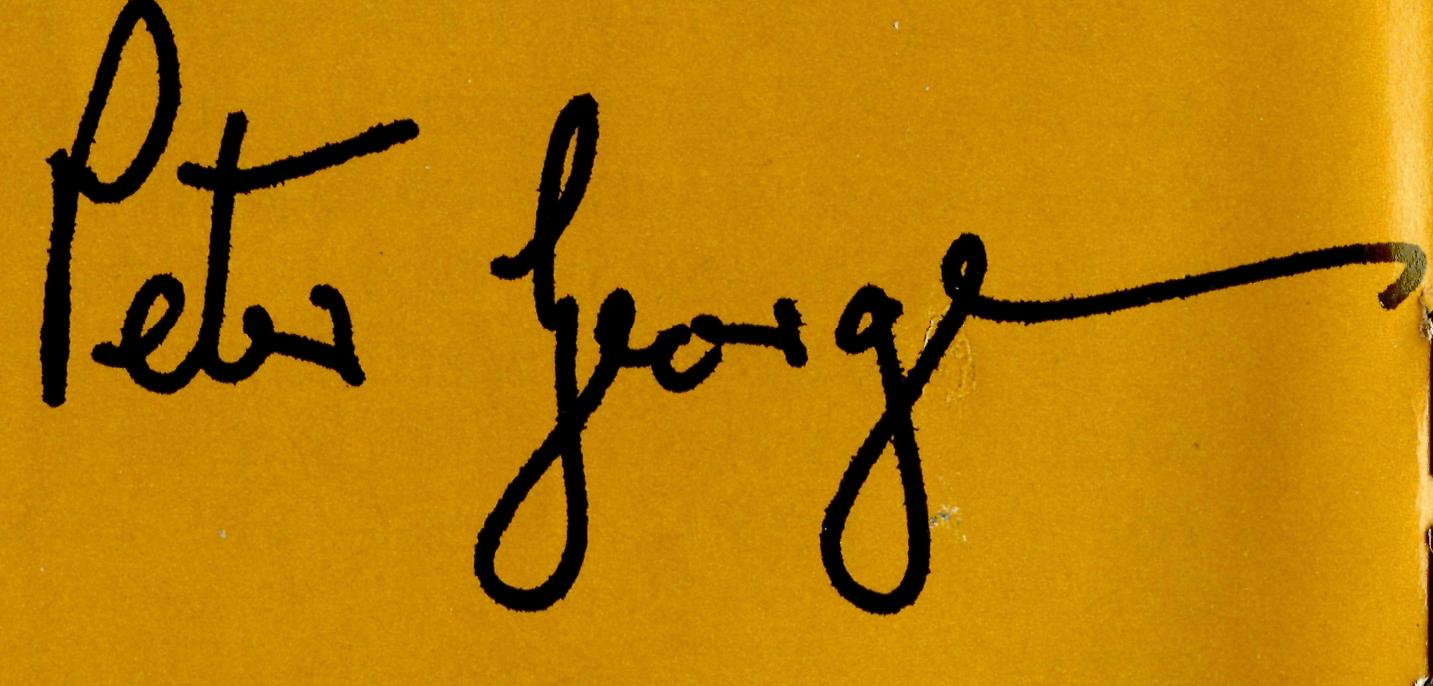 Peter George